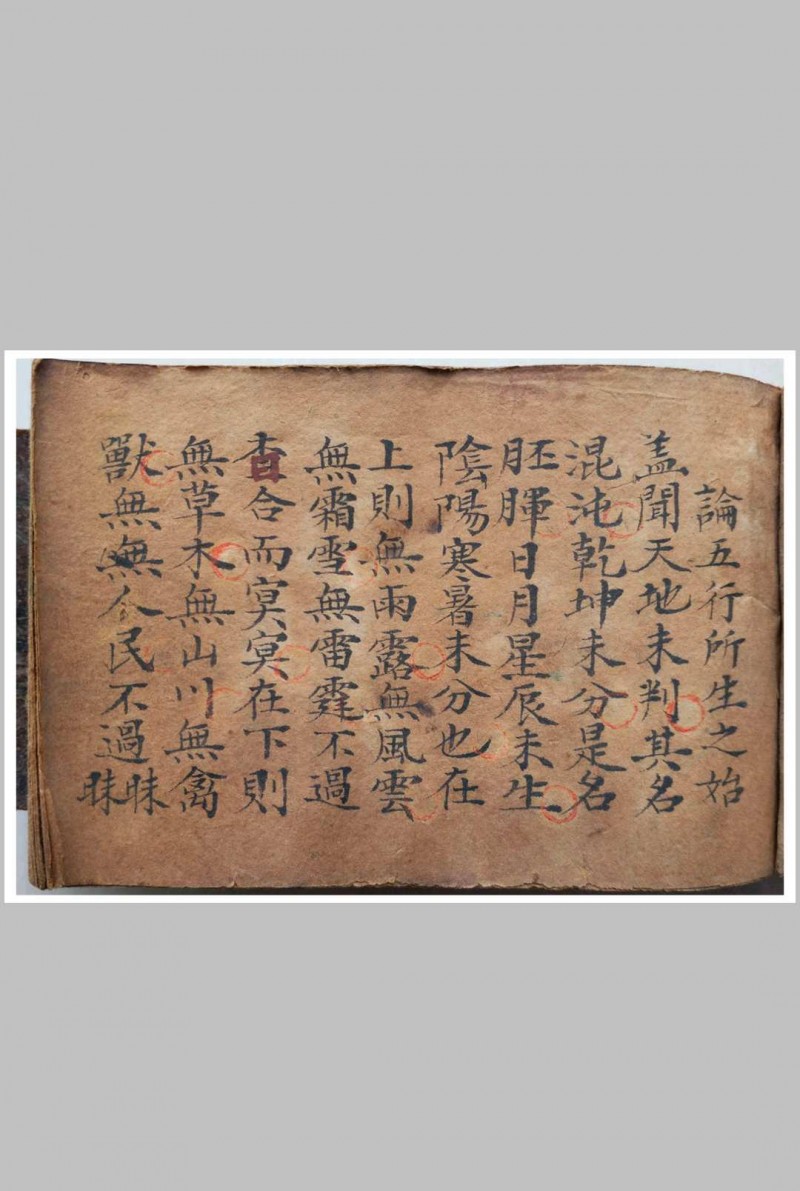 論五行所生之始
盖聞天地未判其名
混沌乾坤未分是名
胚腪日月星辰未生
陰陽寒暑未分也在
上則無雨露無風雲
無霜雪無雷霆不過
杳合而冥冥在下則
無草木無山川無禽
獸無無人民不過昧昧